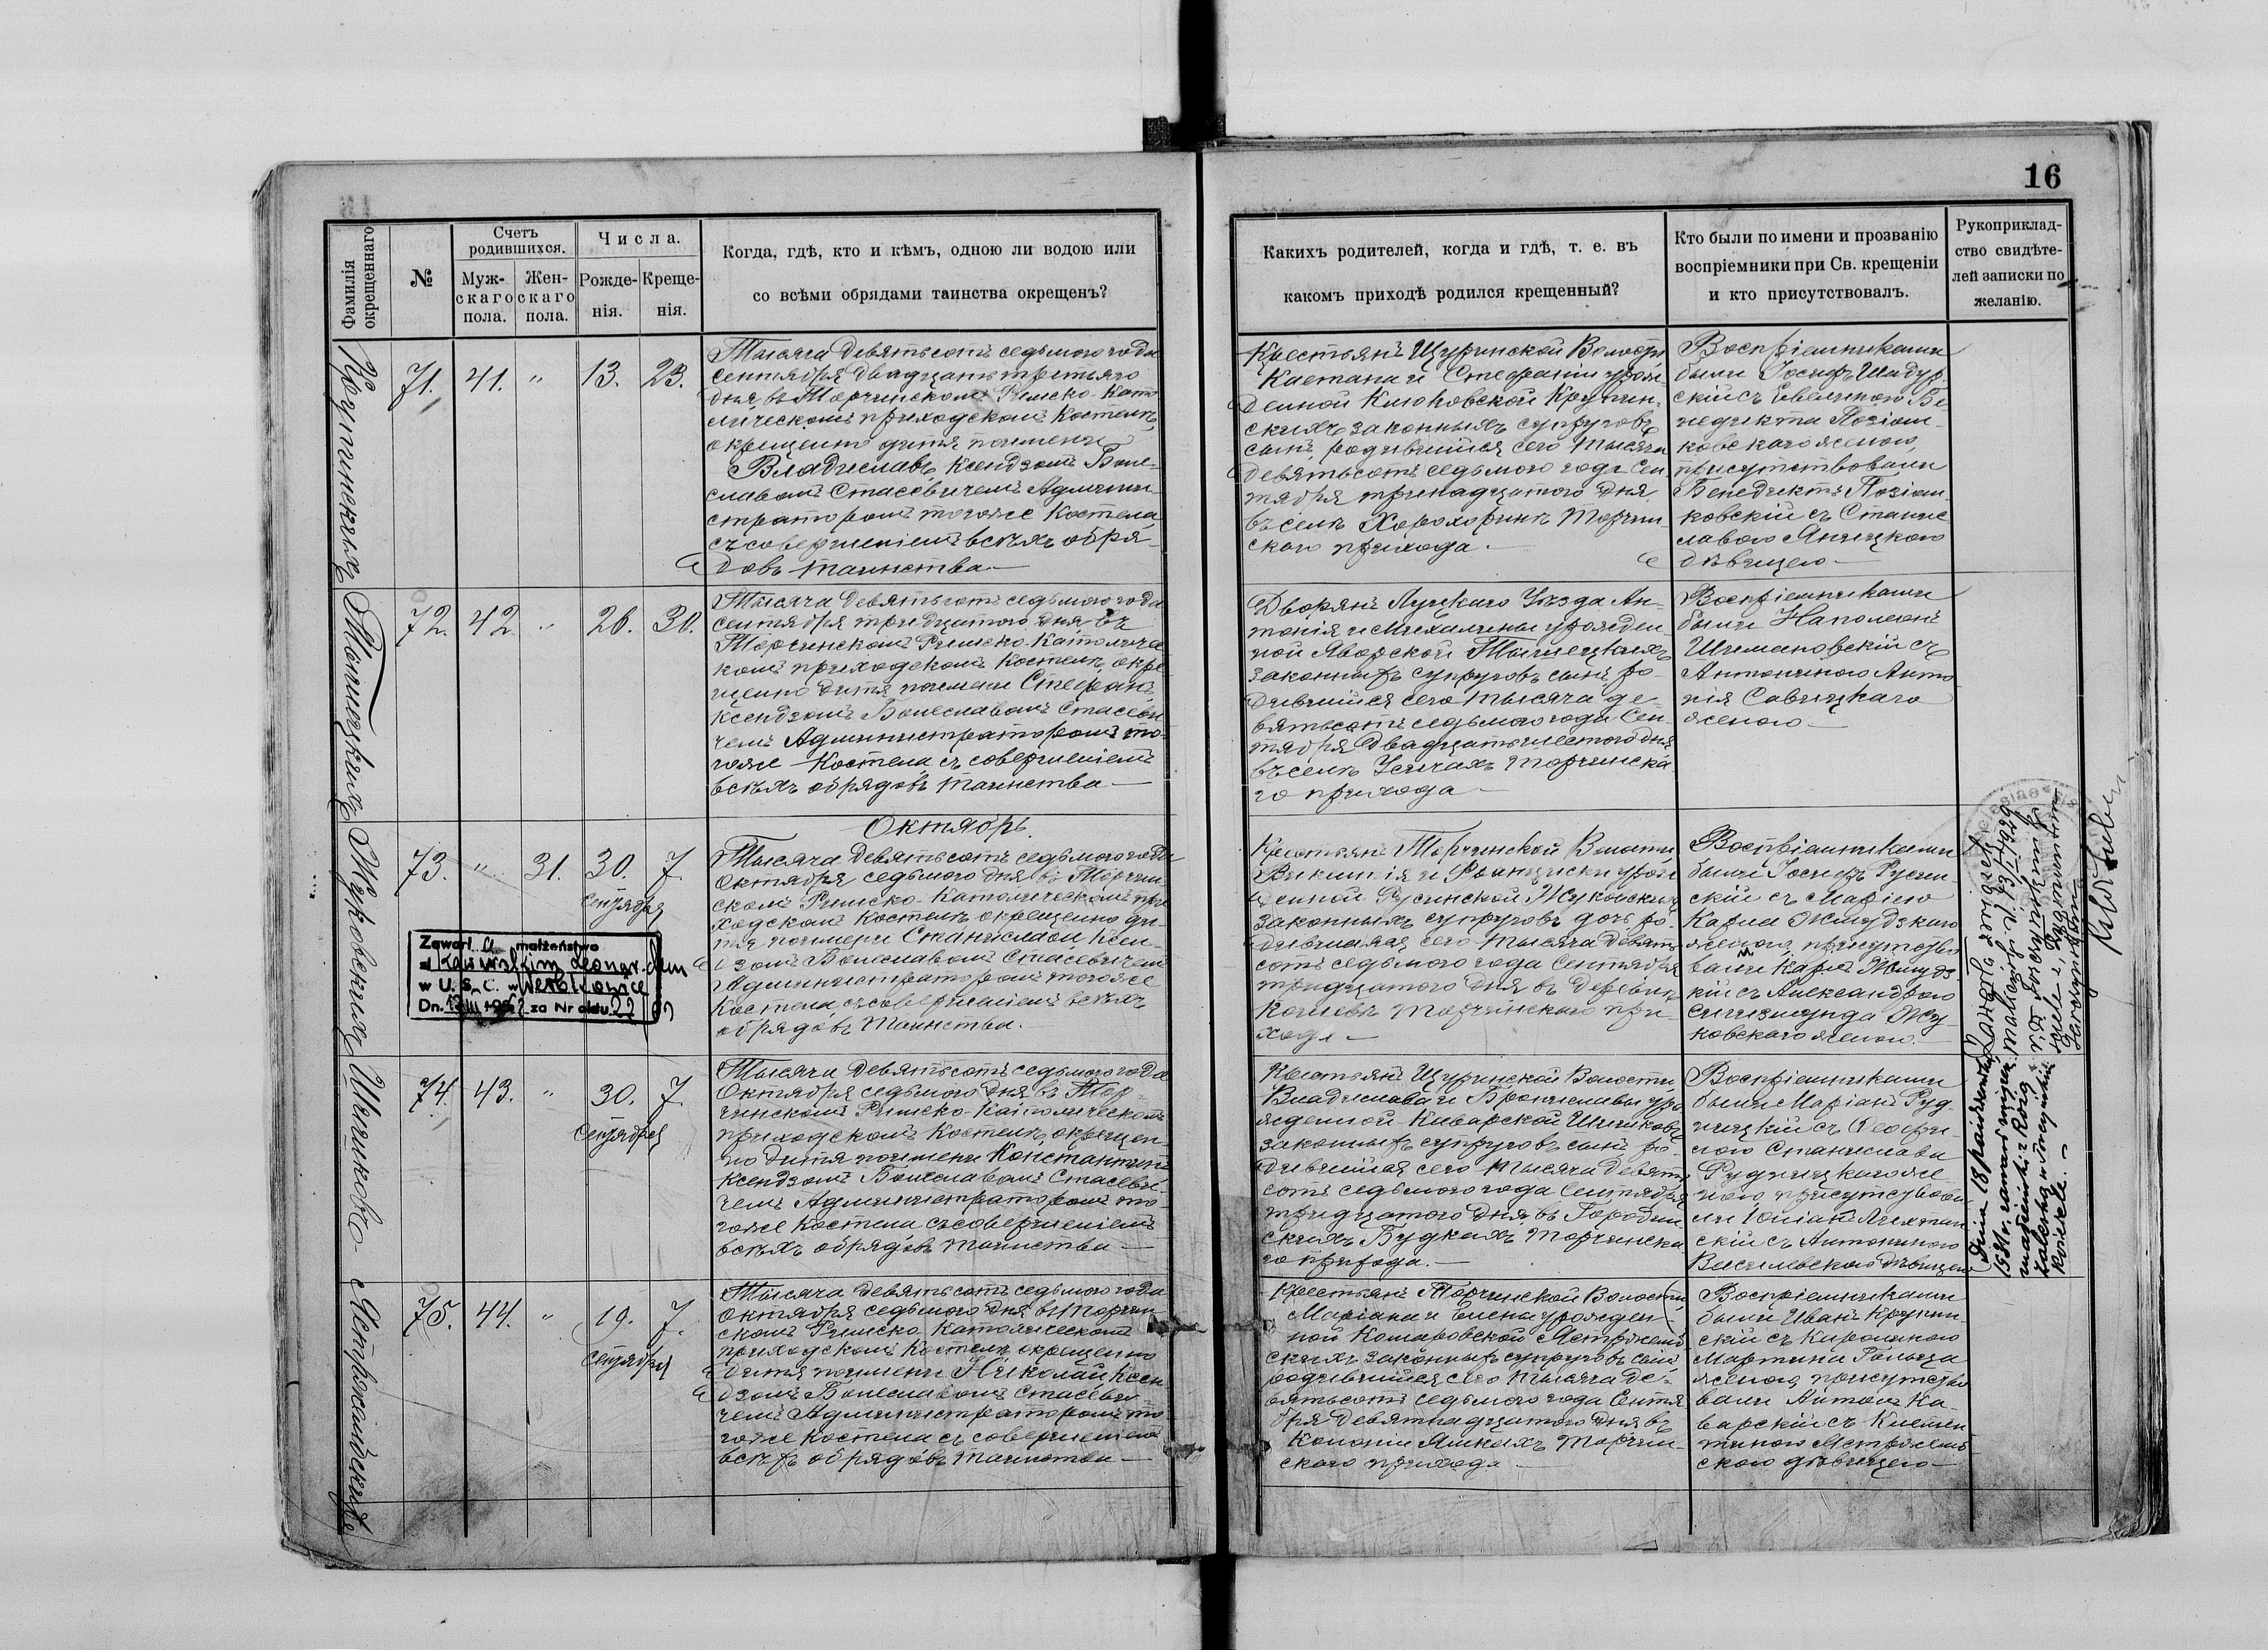 16
Фамилія окрещеннаго
№
Счетъ родившихся.
Муж-
скаго
пола.
Жен-
скаго
пола.
Числа.
Рожде-
нія.
Креще-
нія.
Когда, гдѣ, кто и кѣмъ, одною ли водою или
со всѣми обрядами таинства окрещенъ?
Какихъ родителей, когда и гдѣ, т. е. въ
какомъ приходѣ родился крещенный?
Кто были по имени и прозванію
воспріемники при Св. крещеніи
и кто присутствовалъ.
Рукоприклад-
ство свидѣте-
лей записки по
желанію.
71. 41. " 13. 23.
Тысяча девятьсотъ седьмого года
сентября двадцать третьяго
дня въ Торчинскомъ Римско-Като
лическомъ приходскомъ Костелѣ
окрещено дитя по имени
Владиславъ, Ксендзомъ Боле-
славомъ Стасевичемъ Админи-
страторомъ того же Костела,
съ совершеніемъ всѣхъ обря-
довъ таинства
Крестьянъ Щуринской Волости
Каетана и Стефаніи урож-
денной Клюковской Крупин-
скихъ законныхъ супруговъ
сынъ, родившійся сего тысяча
девятьсотъ седьмого года Сен
тября тринадцатого дня
въ селѣ Хорохоринѣ Торчин
ского прихода.
Воспріемниками
были Іосифъ Шадур-
скій съ Евелиною Бе-
недикта Позіом-
ковскаго женою,
присутствовали
Бенедиктъ Позіом-
ковскій съ Станис
лавою Яницкою
дѣвицею
72. 42. " 26. 30.
Тысяча девятьсотъ седьмого года
сентября тридцатого дня въ
Торчинскомъ Римско-Католичес
комъ приходскомъ Костелѣ окре
щено дитя по имени Стефанъ,
Ксендзомъ Болеславомъ Стасеви
чемъ Администраторомъ то-
гоже Костела, съ совершеніемъ
всѣхъ обрядовъ таинства
Дворянъ Луцкаго Уѣзда Ан-
тонія и Михалины урожден-
ной Яворской
законныхъ супруговъ сынъ, ро-
дившійся сего тысяча де-
вятьсотъ седьмого года Сен-
тября двадцать шестого дня
въ селѣ Усичахъ Торчинска-
го прихода
Воспріемниками
были Наполеонъ
Шимановскій съ
Антониною Анто
нія Савицкаго
женою
Октябрь.
73. " 31. 30. 7.
Сентября
Тысяча девятьсотъ седьмого года
Октября седьмого дня въ Торчин
скомъ Римско-Католическомъ при
ходскомъ Костелѣ окрещено ди-
тя по имени Станислава Ксен-
дзомъ Болеславомъ Стасевичемъ
Администраторомъ тогоже
Костела, съ совершеніемъ всѣхъ
обрядовъ Таинства.
Крестьянъ Торчинской Волости,
Викентія и Францишки урож
денной Русинской Жуковскихъ
законныхъ супруговъ дочь ро-
дившаяся сего тысяча девять
сотъ седьмого года Сентября
тридцатого дня въ деревнѣ
Торчинского при-
хода
Воспріемниками
были Іосифъ Русин-
скій съ Маріею
Карла Жмудзкаго
женою, присутство
вали Карлъ Жмудз
кій съ Александрою
Сигизмунда Жу-
ковскаго женою.
Zawarł a małżeństwo
z
w U. S. C. w
Dn. za Nr aktu 22
Dnia 18 października
1931 r.
małżeński z
Zaleską w Torczyńskim
kościele.
74. 43. " 30. 7.
Сентября
Тысяча девятьсотъ седьмого года
Октября седьмого дня въ Тор-
чинскомъ Римско-Католическомъ
приходскомъ Костелѣ, окрещен-
но дитя по имени Константинъ
Ксендзомъ Болеславомъ Стасеви-
чемъ Администраторомъ то-
гоже Костела съ совершеніемъ
всѣхъ обрядовъ таинства
Крестьянъ Щуринской Волости,
Владислава и Брониславы уро
жденной Каварской Шишковъ
законныхъ супруговъ сынъ ро-
дившійся сего тысяча девять
сотъ седьмого года Сентября
тридцатого дня въ Городин
скихъ Будкахъ Торчинска
го прихода.
Воспріемниками
были Маріанъ Руд-
ницкій съ Теофи-
лою Станислава
Рудницкаго же
ною присутствова
ли Юліанъ
скій съ Антониною
Василевскою дѣвицею
75. 44. " 19. 7.
Сентября
Тысяча девятьсотъ седьмого года
Октября седьмого дня въ Торчин-
скомъ Римско-Католическомъ
приходскомъ Костелѣ окрещено
дитя по имени Николай Ксен
дзомъ Болеславомъ Стасеви
чемъ Администраторомъ то-
гоже Костела съ совершеніемъ
всѣхъ обрядовъ таинства
Крестьянъ Торчинской Волости,
Маріана и Елены урожден-
ной Комаровской Ястржемб
скихъ законныхъ супруговъ сынъ
родившійся сего тысяча де-
вятьсотъ седьмого года Сентя
бря девятнадцатого дня въ
Колоніи Торчин-
ского прихода
Воспріемниками
были Иванъ Крупин-
скій съ Каролиною
Мартина
женою, присутство
вали Антонъ Ка-
варскій съ Клемен
тиною Ястржемб
скою дѣвицею